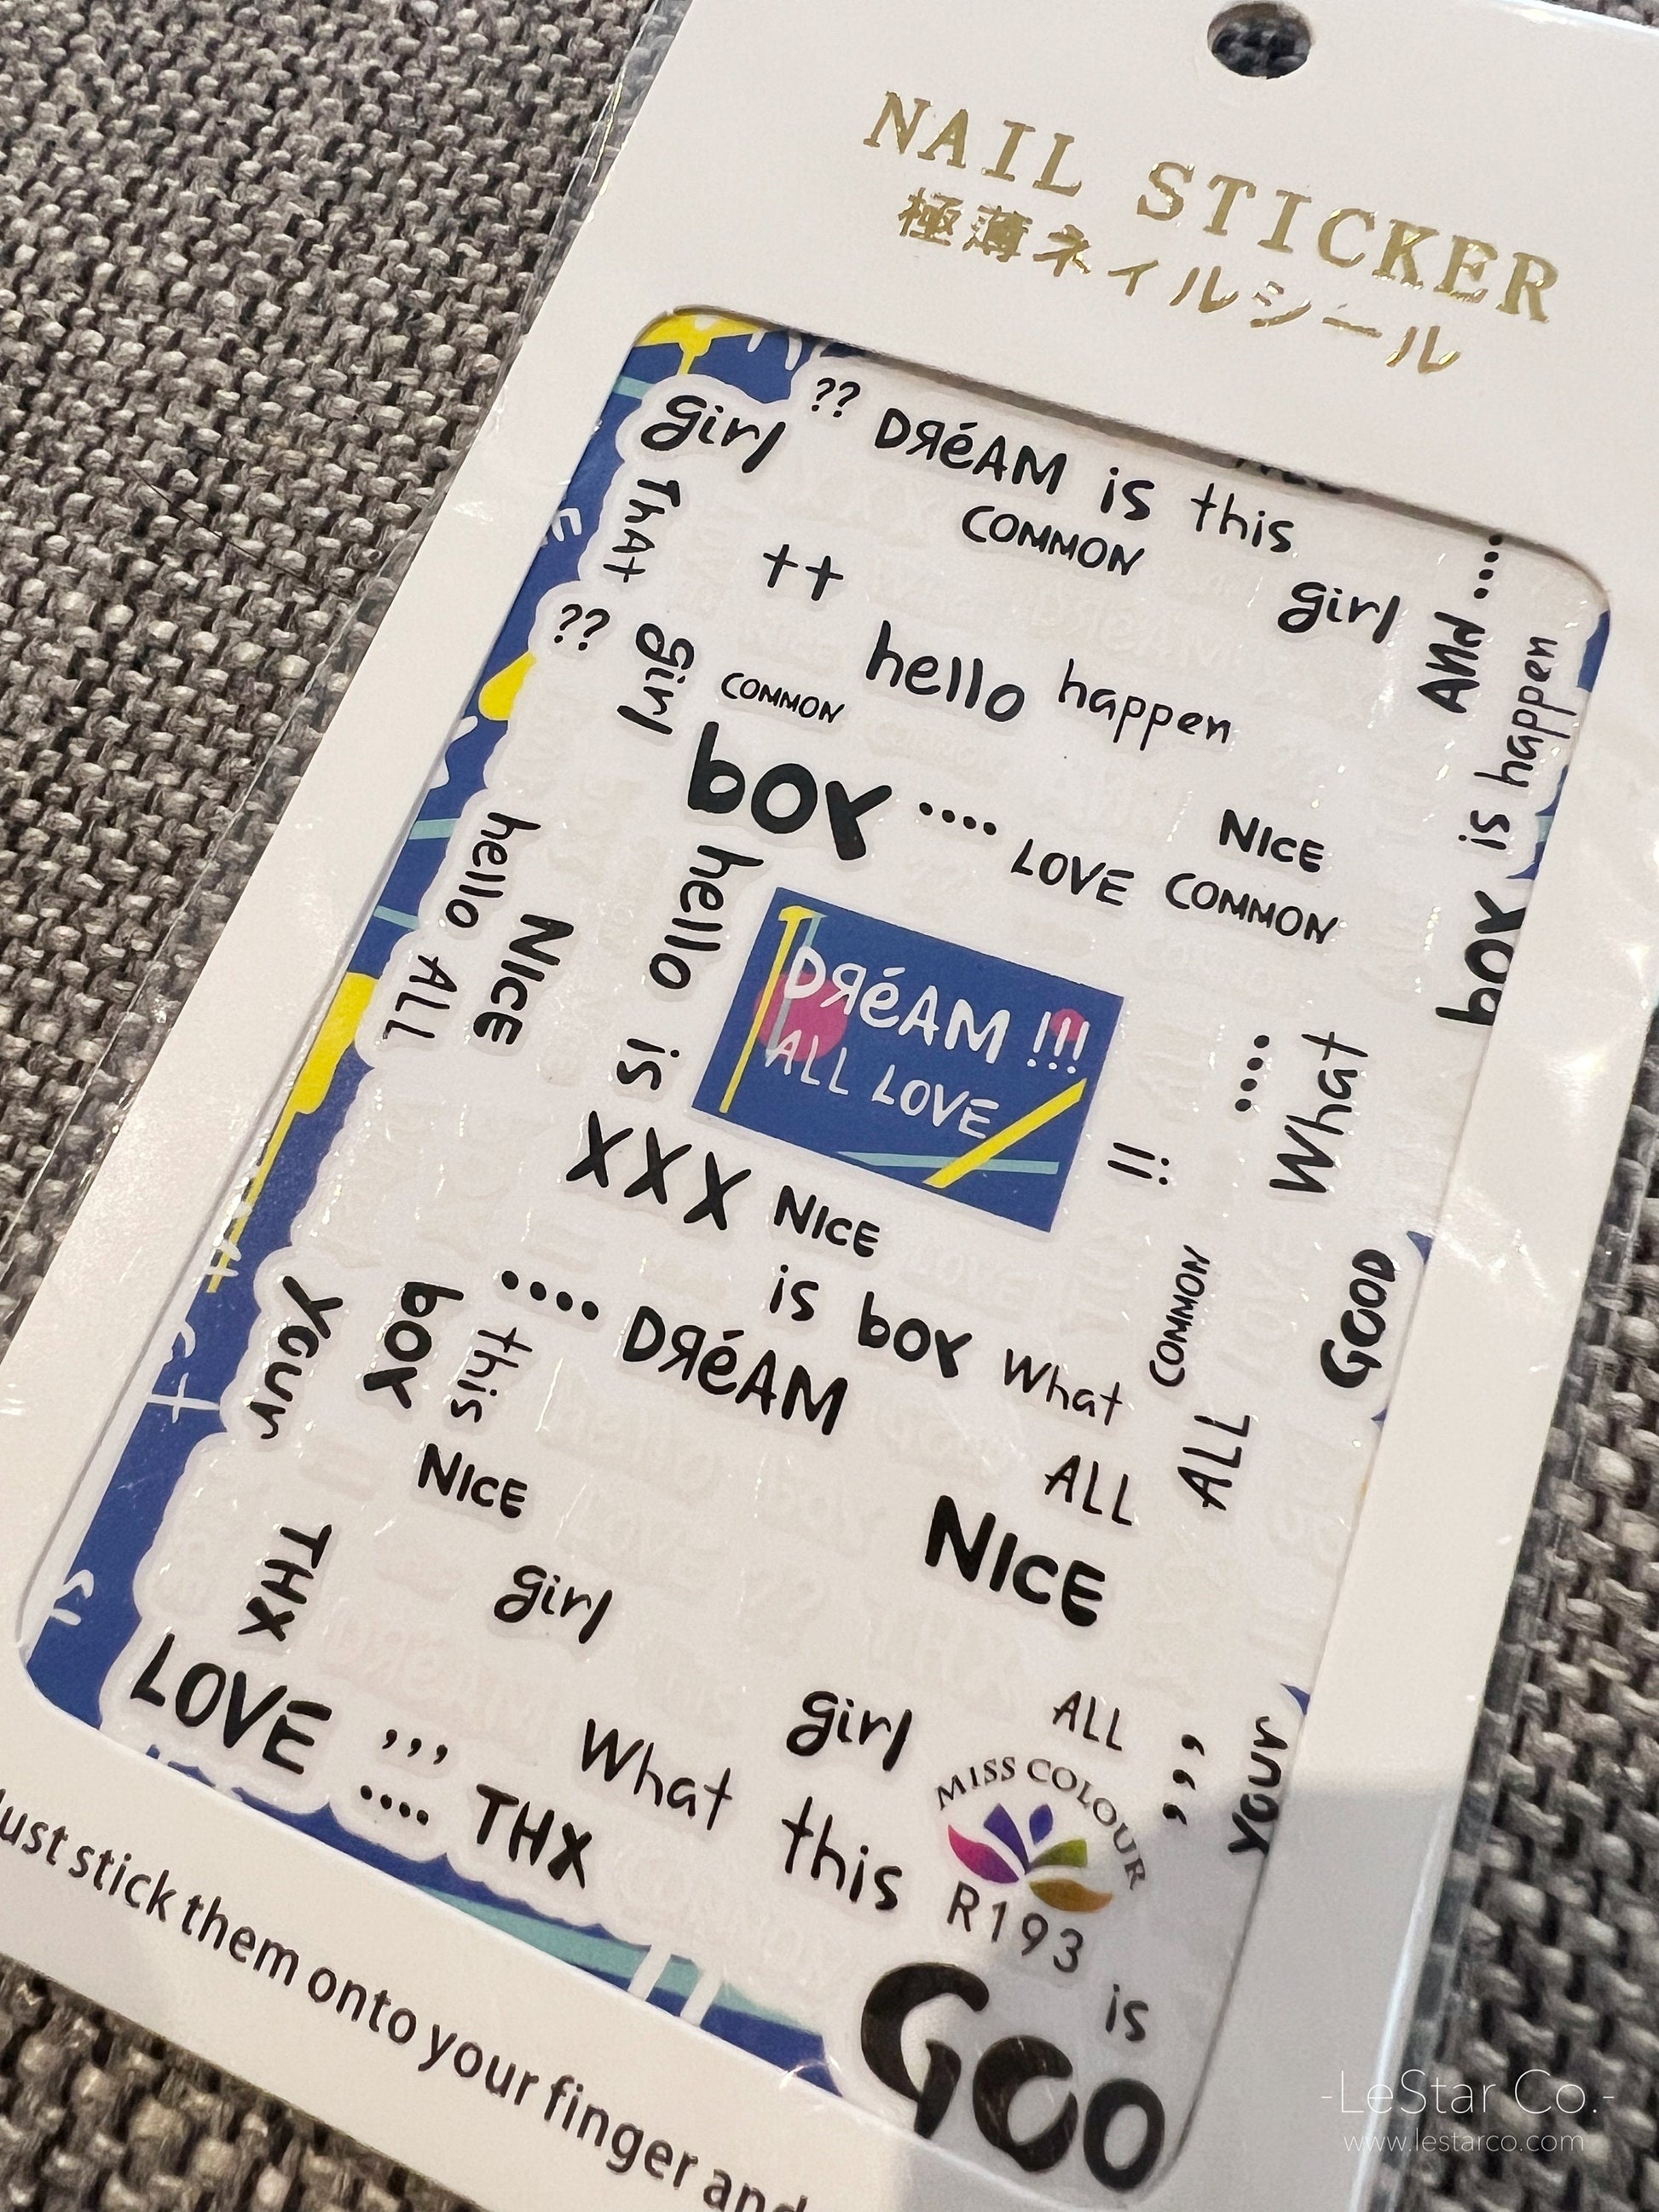 NAIL STICKER
極薄ネイルシール
??
girl
DRéAM is this
COMMON
THAt
††
girl
And ....
??
girl
COMMON
hello happen
boy is happen
boy ....
LOVE
NICE
COMMON
hello ALL
NICE
hello is
DRéAM !!!
ALL LOVE
....
What
!!
XXX NICE
is boy What
COMMON
GOOD
Your
boy
this
.... DRéAM
ALL
ALL
NICE
NICE
THX
girl
LOVE ,,,
.... THX
What this
girl
ALL
,,,
your
MISS COLOUR
R193
is
GOO
ust stick them onto your finger and
-LeStar Co.-
www.lestarco.com